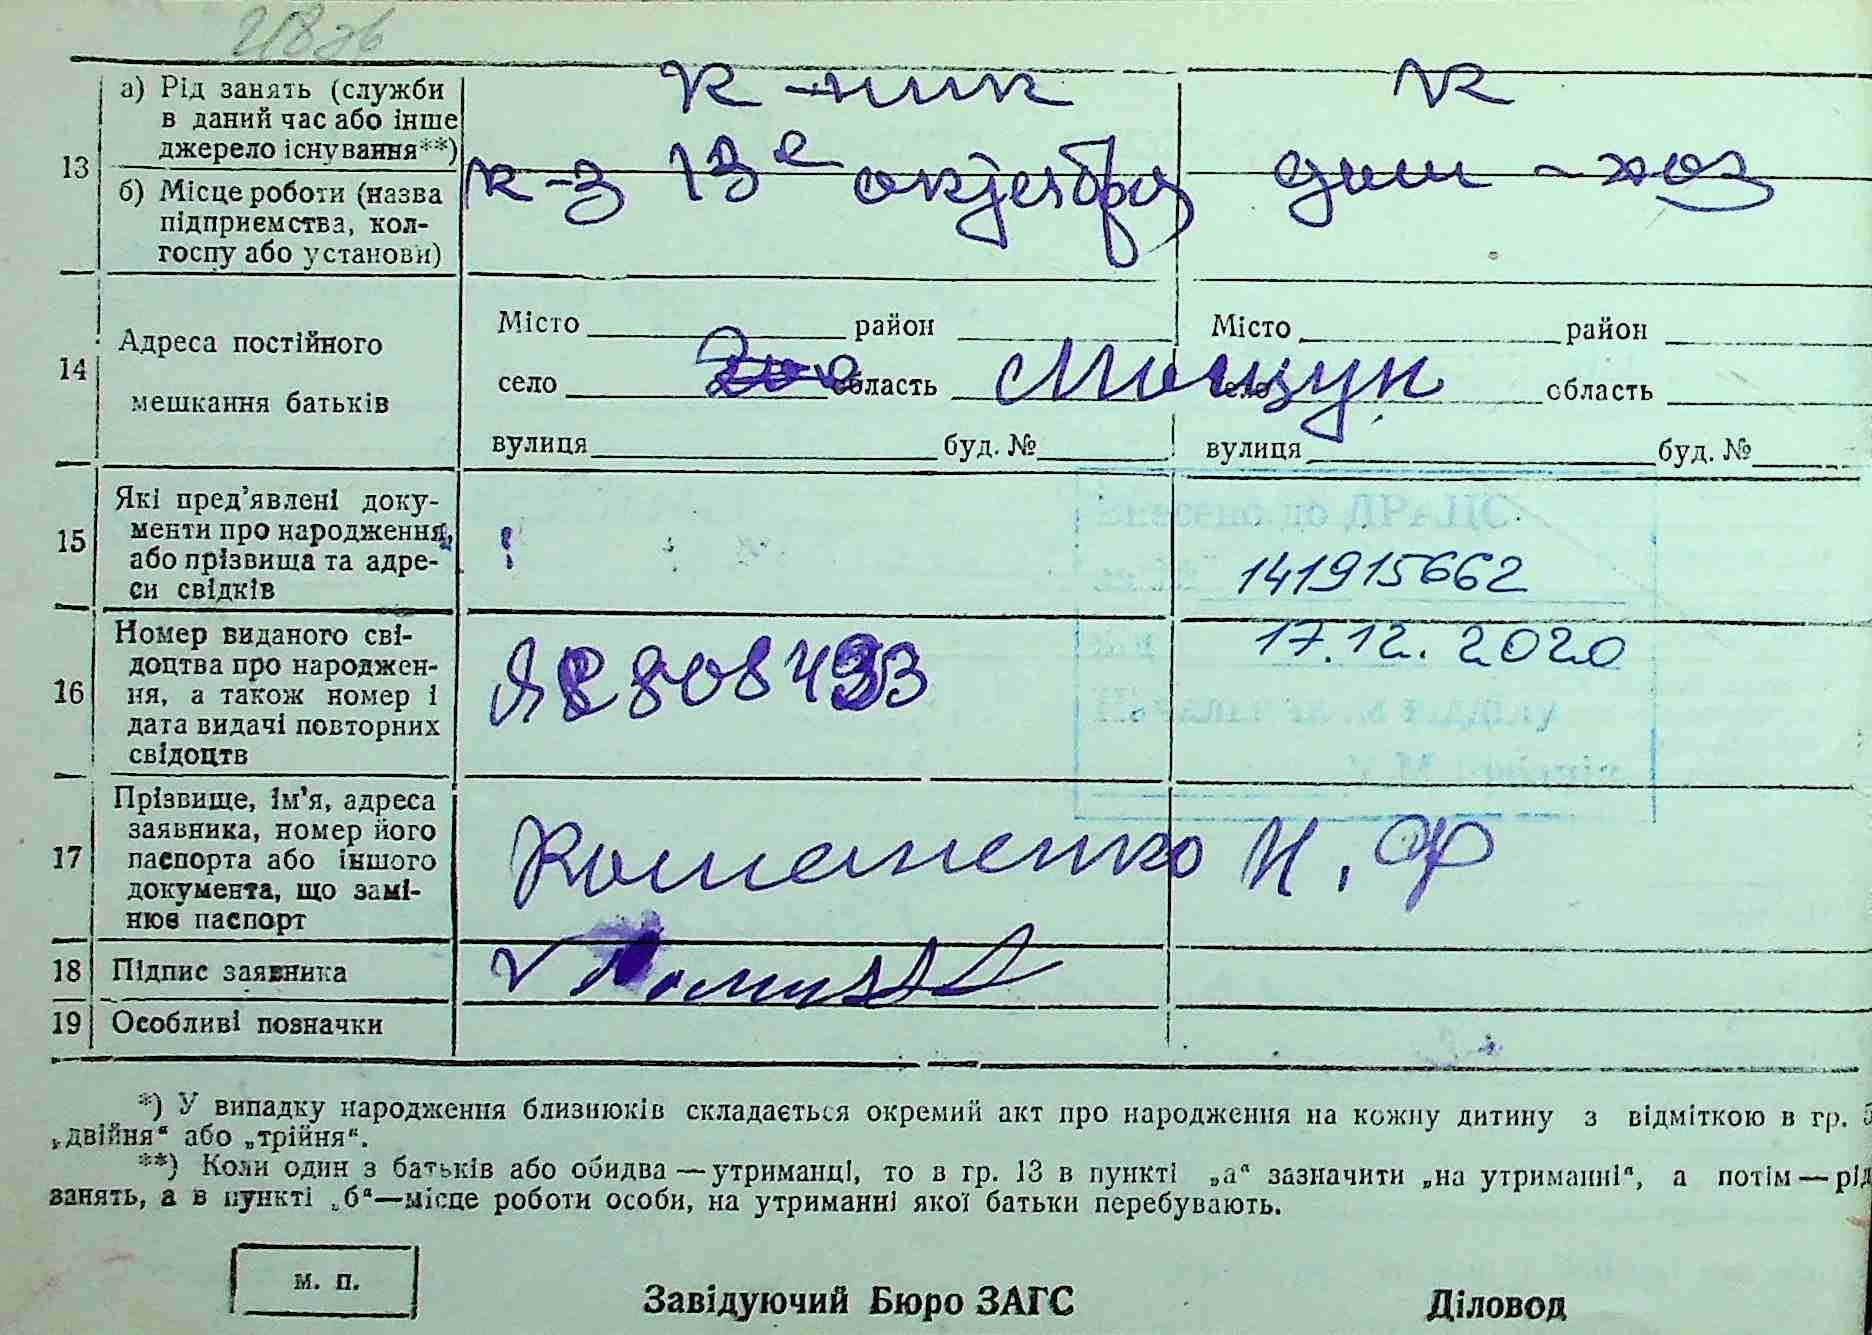 218
13
а) Рід занять (служби в даний час або інше джерело існування**)
к-ник
к
б) Місце роботи (назва підприємства, колгоспу або установи)
к-з 13е октября
дом-хоз
14
Адреса постійного мешкання батьків
Місто район
село область Мощун
вулиця буд. №
Місто район
село область
вулиця буд. №
15
Які пред'явлені документи про народження, або прізвища та адреси свідків
141915662
16
Номер виданого свідоцтва про народження, а також номер і дата видачі повторних свідоцтв
808433
17.12.2020
17
Прізвище, ім'я, адреса заявника, номер його паспорта або іншого документа, що замінює паспорт
Романенко И. Ф
18
Підпис заявника
19
Особливі позначки
*) У випадку народження близнюків складається окремий акт про народження на кожну дитину з відміткою в гр.
„двійня“ або „трійня“.
**) Коли один з батьків або обидва — утриманці, то в гр. 13 в пункті „а“ зазначити „на утриманні“, а потім — рід
занять, а в пункті „б“—місце роботи особи, на утриманні якої батьки перебувають.
м. п.
Завідуючий Бюро ЗАГС
Діловод